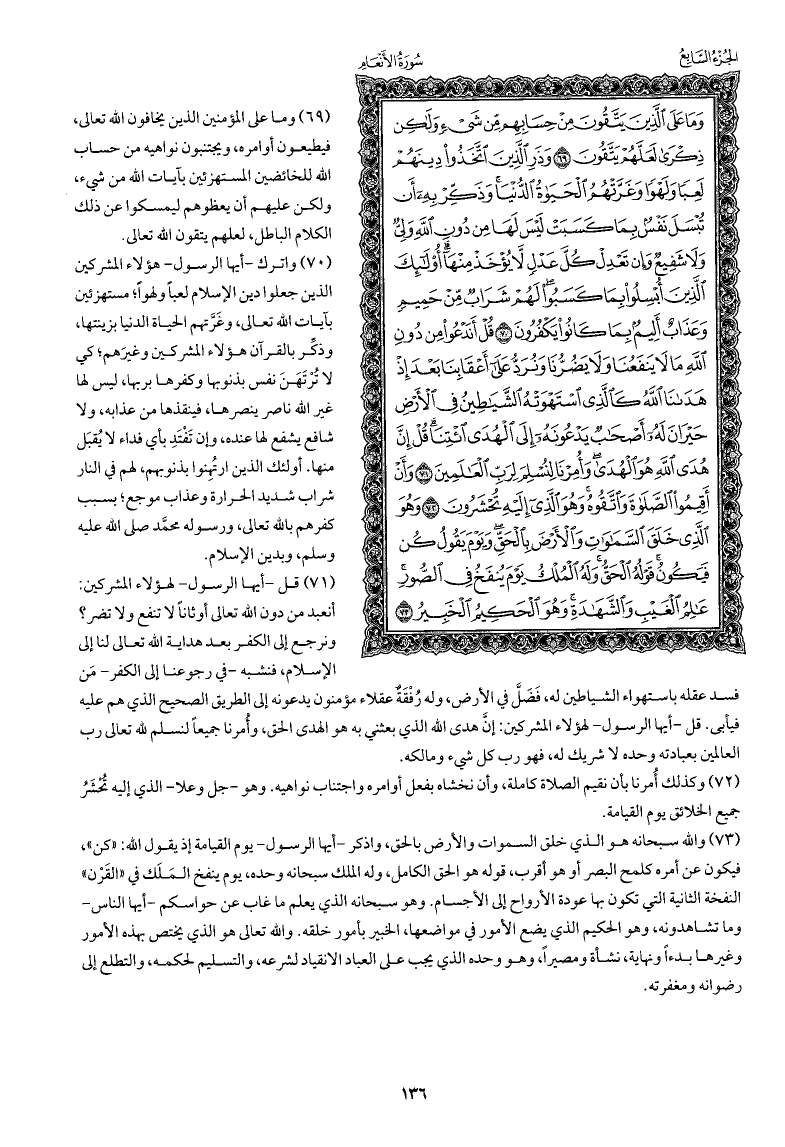 الجزء السابع
سورة الأنعام
وَمَا عَلَى ٱلَّذِينَ يَتَّقُونَ مِنْ حِسَابِهِم مِّن شَىْءٍ وَلَٰكِن
ذِكْرَىٰ لَعَلَّهُمْ يَتَّقُونَ ٦٩ وَذَرِ ٱلَّذِينَ ٱتَّخَذُوا۟ دِينَهُمْ
لَعِبًا وَلَهْوًا وَغَرَّتْهُمُ ٱلْحَيَوٰةُ ٱلدُّنْيَا ۚ وَذَكِّرْ بِهِۦٓ أَن
تُبْسَلَ نَفْسٌۢ بِمَا كَسَبَتْ لَيْسَ لَهَا مِن دُونِ ٱللَّهِ وَلِىٌّ
وَلَا شَفِيعٌ وَإِن تَعْدِلْ كُلَّ عَدْلٍ لَّا يُؤْخَذْ مِنْهَآ ۗ أُو۟لَٰٓئِكَ
ٱلَّذِينَ أُبْسِلُوا۟ بِمَا كَسَبُوا۟ ۖ لَهُمْ شَرَابٌ مِّنْ حَمِيمٍ
وَعَذَابٌ أَلِيمٌۢ بِمَا كَانُوا۟ يَكْفُرُونَ ٧٠ قُلْ أَنَدْعُوا۟ مِن دُونِ
ٱللَّهِ مَا لَا يَنفَعُنَا وَلَا يَضُرُّنَا وَنُرَدُّ عَلَىٰٓ أَعْقَابِنَا بَعْدَ إِذْ
هَدَىٰنَا ٱللَّهُ كَٱلَّذِى ٱسْتَهْوَتْهُ ٱلشَّيَٰطِينُ فِى ٱلْأَرْضِ
حَيْرَانَ لَهُۥٓ أَصْحَٰبٌ يَدْعُونَهُۥٓ إِلَى ٱلْهُدَى ٱئْتِنَا ۗ قُلْ إِنَّ
هُدَى ٱللَّهِ هُوَ ٱلْهُدَىٰ ۖ وَأُمِرْنَا لِنُسْلِمَ لِرَبِّ ٱلْعَٰلَمِينَ ٧١ وَأَنْ
أَقِيمُوا۟ ٱلصَّلَوٰةَ وَٱتَّقُوهُ ۚ وَهُوَ ٱلَّذِىٓ إِلَيْهِ تُحْشَرُونَ ٧٢ وَهُوَ
ٱلَّذِى خَلَقَ ٱلسَّمَٰوَٰتِ وَٱلْأَرْضَ بِٱلْحَقِّ ۖ وَيَوْمَ يَقُولُ كُن
فَيَكُونُ ۚ قَوْلُهُ ٱلْحَقُّ ۚ وَلَهُ ٱلْمُلْكُ يَوْمَ يُنفَخُ فِى ٱلصُّورِ ۚ
عَٰلِمُ ٱلْغَيْبِ وَٱلشَّهَٰدَةِ ۚ وَهُوَ ٱلْحَكِيمُ ٱلْخَبِيرُ ٧٣
(٦٩) وما على المؤمنين الذين يخافون الله تعالى،
فيطيعون أوامره، ويجتنبون نواهيه من حساب
الله للخائضين المستهزئين بآيات الله من شيء،
ولكن عليهم أن يعظوهم ليمسكوا عن ذلك
الكلام الباطل، لعلهم يتقون الله تعالى.
(٧٠) واترك -أيها الرسول- هؤلاء المشركين
الذين جعلوا دين الإسلام لعباً ولهواً؛ مستهزئين
بآيات الله تعالى، وغَرَّتهم الحياة الدنيا بزينتها،
وذكِّر بالقرآن هؤلاء المشركين وغيرَهم؛ كي
لا تُرْتَهَنَ نفس بذنوبها وكفرها بربها، ليس لها
غير الله ناصر ينصرها، فينقذها من عذابه، ولا
شافع يشفع لها عنده، وإن تَفْتَدِ بأي فداء لا يُقبَل
منها. أولئك الذين ارتُهِنوا بذنوبهم، لهم في النار
شراب شديد الحرارة وعذاب موجع؛ بسبب
كفرهم بالله تعالى، ورسوله محمَّد صلى الله عليه
وسلم، وبدين الإسلام.
(٧١) قل -أيها الرسول- لهؤلاء المشركين:
أنعبد من دون الله تعالى أوثاناً لا تنفع ولا تضر؟
ونرجع إلى الكفر بعد هداية الله تعالى لنا إلى
الإسلام، فنشبه -في رجوعنا إلى الكفر- مَن
فسد عقله باستهواء الشياطين له، فَضَلَّ في الأرض، وله رُفْقَةٌ عقلاء مؤمنون يدعونه إلى الطريق الصحيح الذي هم عليه
فيأبى. قل -أيها الرسول- لهؤلاء المشركين: إنَّ هدى الله الذي بعثني به هو الهدى الحق، وأُمرنا جميعاً لنسلم لله تعالى رب
العالمين بعبادته وحده لا شريك له، فهو رب كل شيء ومالكه.
(٧٢) وكذلك أُمرنا بأن نقيم الصلاة كاملة، وأن نخشاه بفعل أوامره واجتناب نواهيه. وهو -جل وعلا- الذي إليه تُحْشَرُ
جميع الخلائق يوم القيامة.
(٧٣) والله سبحانه هو الذي خلق السموات والأرض بالحق، واذكر -أيها الرسول- يوم القيامة إذ يقول الله: «كن»،
فيكون عن أمره كلمح البصر أو هو أقرب، قوله هو الحق الكامل، وله الملك سبحانه وحده، يوم ينفخ المَلَك في «القَرْن»
النفخة الثانية التي تكون بها عودة الأرواح إلى الأجسام. وهو سبحانه الذي يعلم ما غاب عن حواسكم -أيها الناس-
وما تشاهدونه، وهو الحكيم الذي يضع الأمور في مواضعها، الخبير بأمور خلقه. والله تعالى هو الذي يختص بهذه الأمور
وغيرها بدءاً ونهاية، نشأة ومصيراً، وهو وحده الذي يجب على العباد الانقياد لشرعه، والتسليم لحكمه، والتطلع إلى
رضوانه ومغفرته.
١٣٦